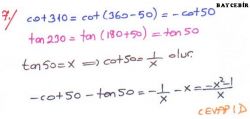 BAYCEBİR
7/ cot310 = cot(360-50) = -cot50
tan230 = tan(180+50) = tan50
tan50 = x ⇒ cot50 = 1/x olur.
-cot50 - tan50 = -1/x - x = (-x²-1)/x
CEVAP D